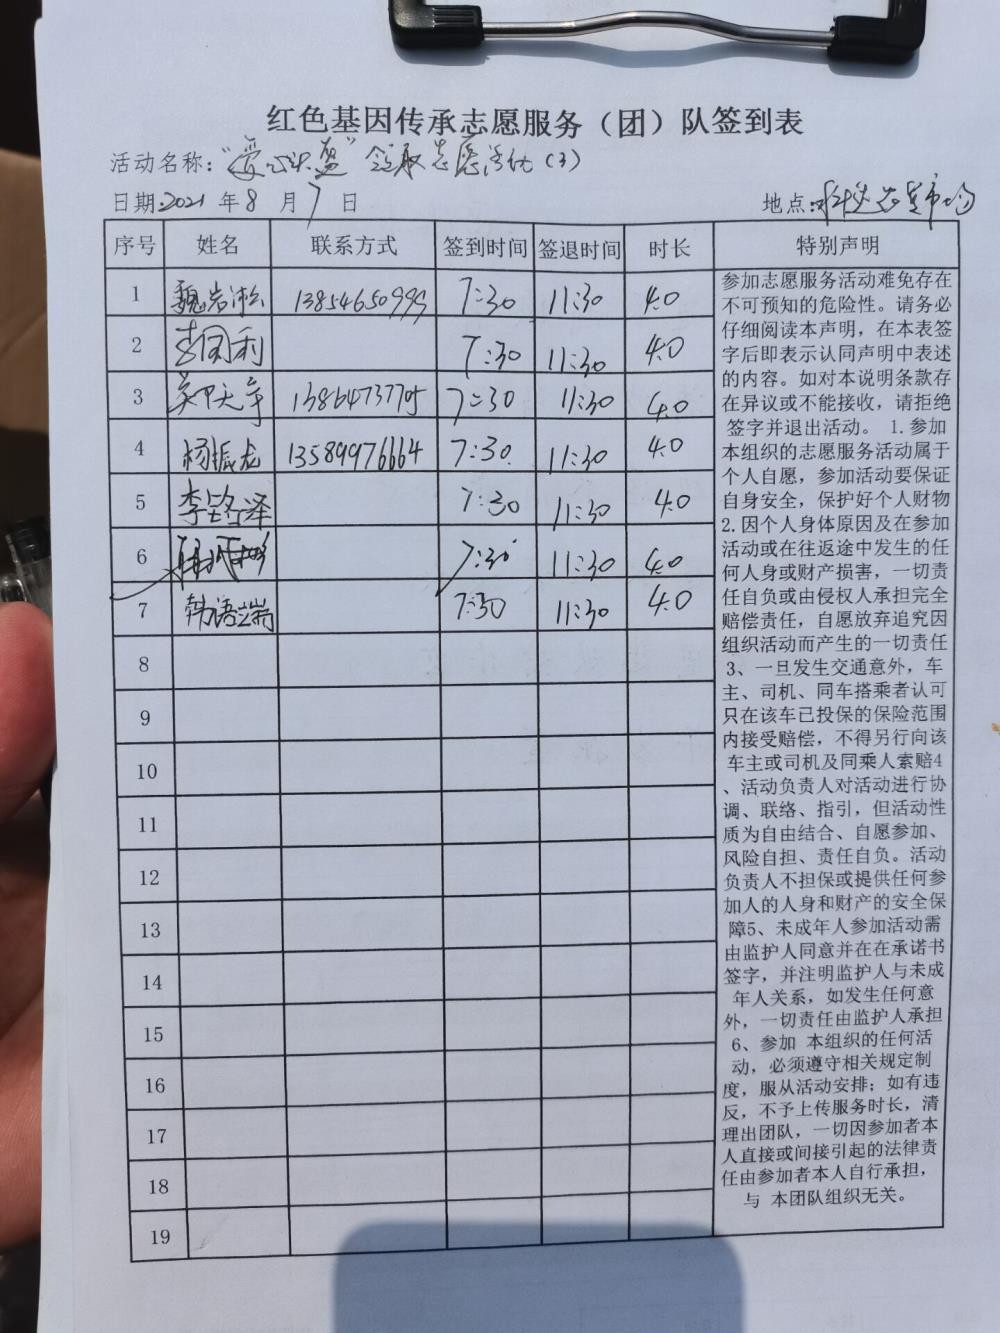 红色基因传承志愿服务（团）队签到表
活动名称："爱心 " 领取志愿活动（3）
日期:2021年8月7日 地点:
序号 姓名 联系方式 签到时间 签退时间 时长 特别声明
1 魏岩淞 13854650999 7:30 11:30 4.0
2 国利 7:30 11:30 4.0
3 7:30 11:30 4.0
4 杨振龙 13589976664 7:30 11:30 4.0
5 李路泽 7:30 11:30 4.0
6 7:30 11:30 4.0
7 韩语 7:30 11:30 4.0
8
9
10
11
12
13
14
15
16
17
18
19
参加志愿服务活动难免存在
不可预知的危险性。请务必
仔细阅读本声明，在本表签
字后即表示认同声明中表述
的内容。如对本说明条款存
在异议或不能接收，请拒绝
签字并退出活动。 1.参加
本组织的志愿服务活动属于
个人自愿，参加活动要保证
自身安全，保护好个人财物
2.因个人身体原因及在参加
活动或在往返途中发生的任
何人身或财产损害，一切责
任自负或由侵权人承担完全
赔偿责任，自愿放弃追究因
组织活动而产生的一切责任
3、一旦发生交通意外，车
主、司机、同车搭乘者认可
只在该车已投保的保险范围
内接受赔偿，不得另行向该
车主或司机及同乘人索赔4
、活动负责人对活动进行协
调、联络、指引，但活动性
质为自由结合、自愿参加、
风险自担、责任自负。活动
负责人不担保或提供任何参
加人的人身和财产的安全保
障5、未成年人参加活动需
由监护人同意并在在承诺书
签字，并注明监护人与未成
年人关系，如发生任何意
外，一切责任由监护人承担
6、参加 本组织的任何活
动，必须遵守相关规定制
度，服从活动安排；如有违
反，不予上传服务时长，清
理出团队，一切因参加者本
人直接或间接引起的法律责
任由参加者本人自行承担，
与 本团队组织无关。